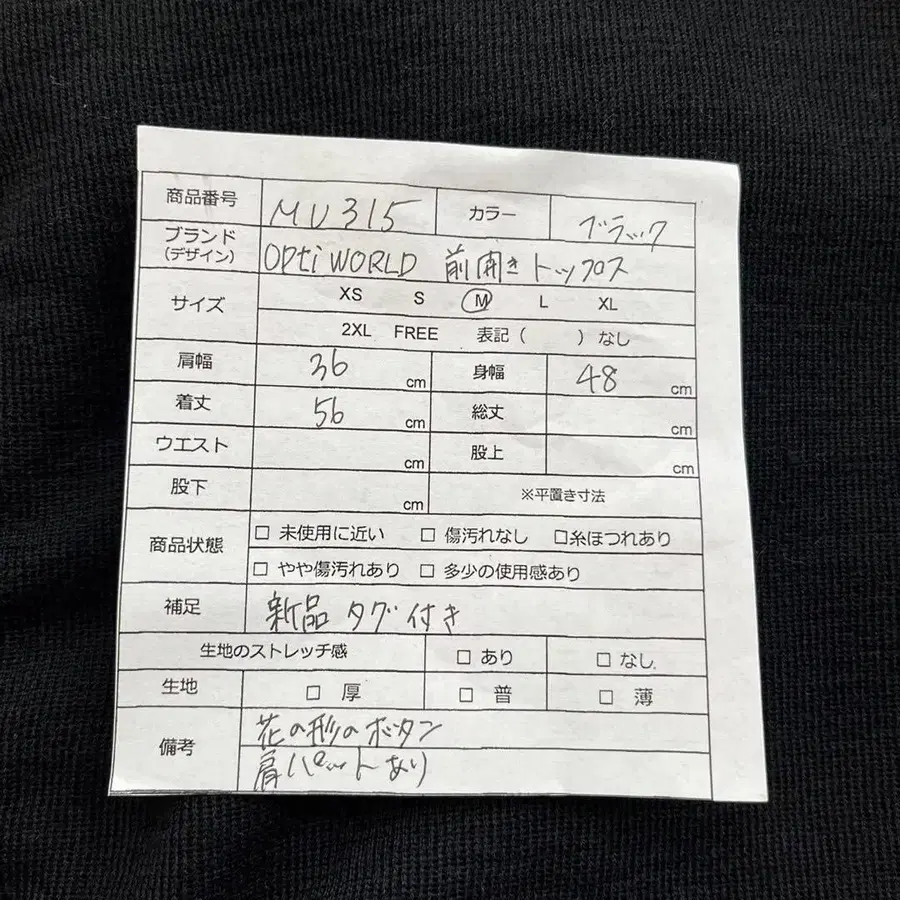 商品番号 MU315 カラー ブラック
ブランド OPtiWORLD 前開きトップス
(デザイン)
サイズ XS S M L XL
2XL FREE 表記( )なし
肩幅 36 cm 身幅 48 cm
着丈 56 cm 総丈 cm
ウエスト cm 股上 cm
股下 cm ※平置き寸法
商品状態 □ 未使用に近い □ 傷汚れなし □糸ほつれあり
□ やや傷汚れあり □ 多少の使用感あり
補足 新品タグ付き
生地のストレッチ感 □ あり □ なし
生地 □ 厚 □ 普 □ 薄
備考 花の形のボタン
肩パットあり